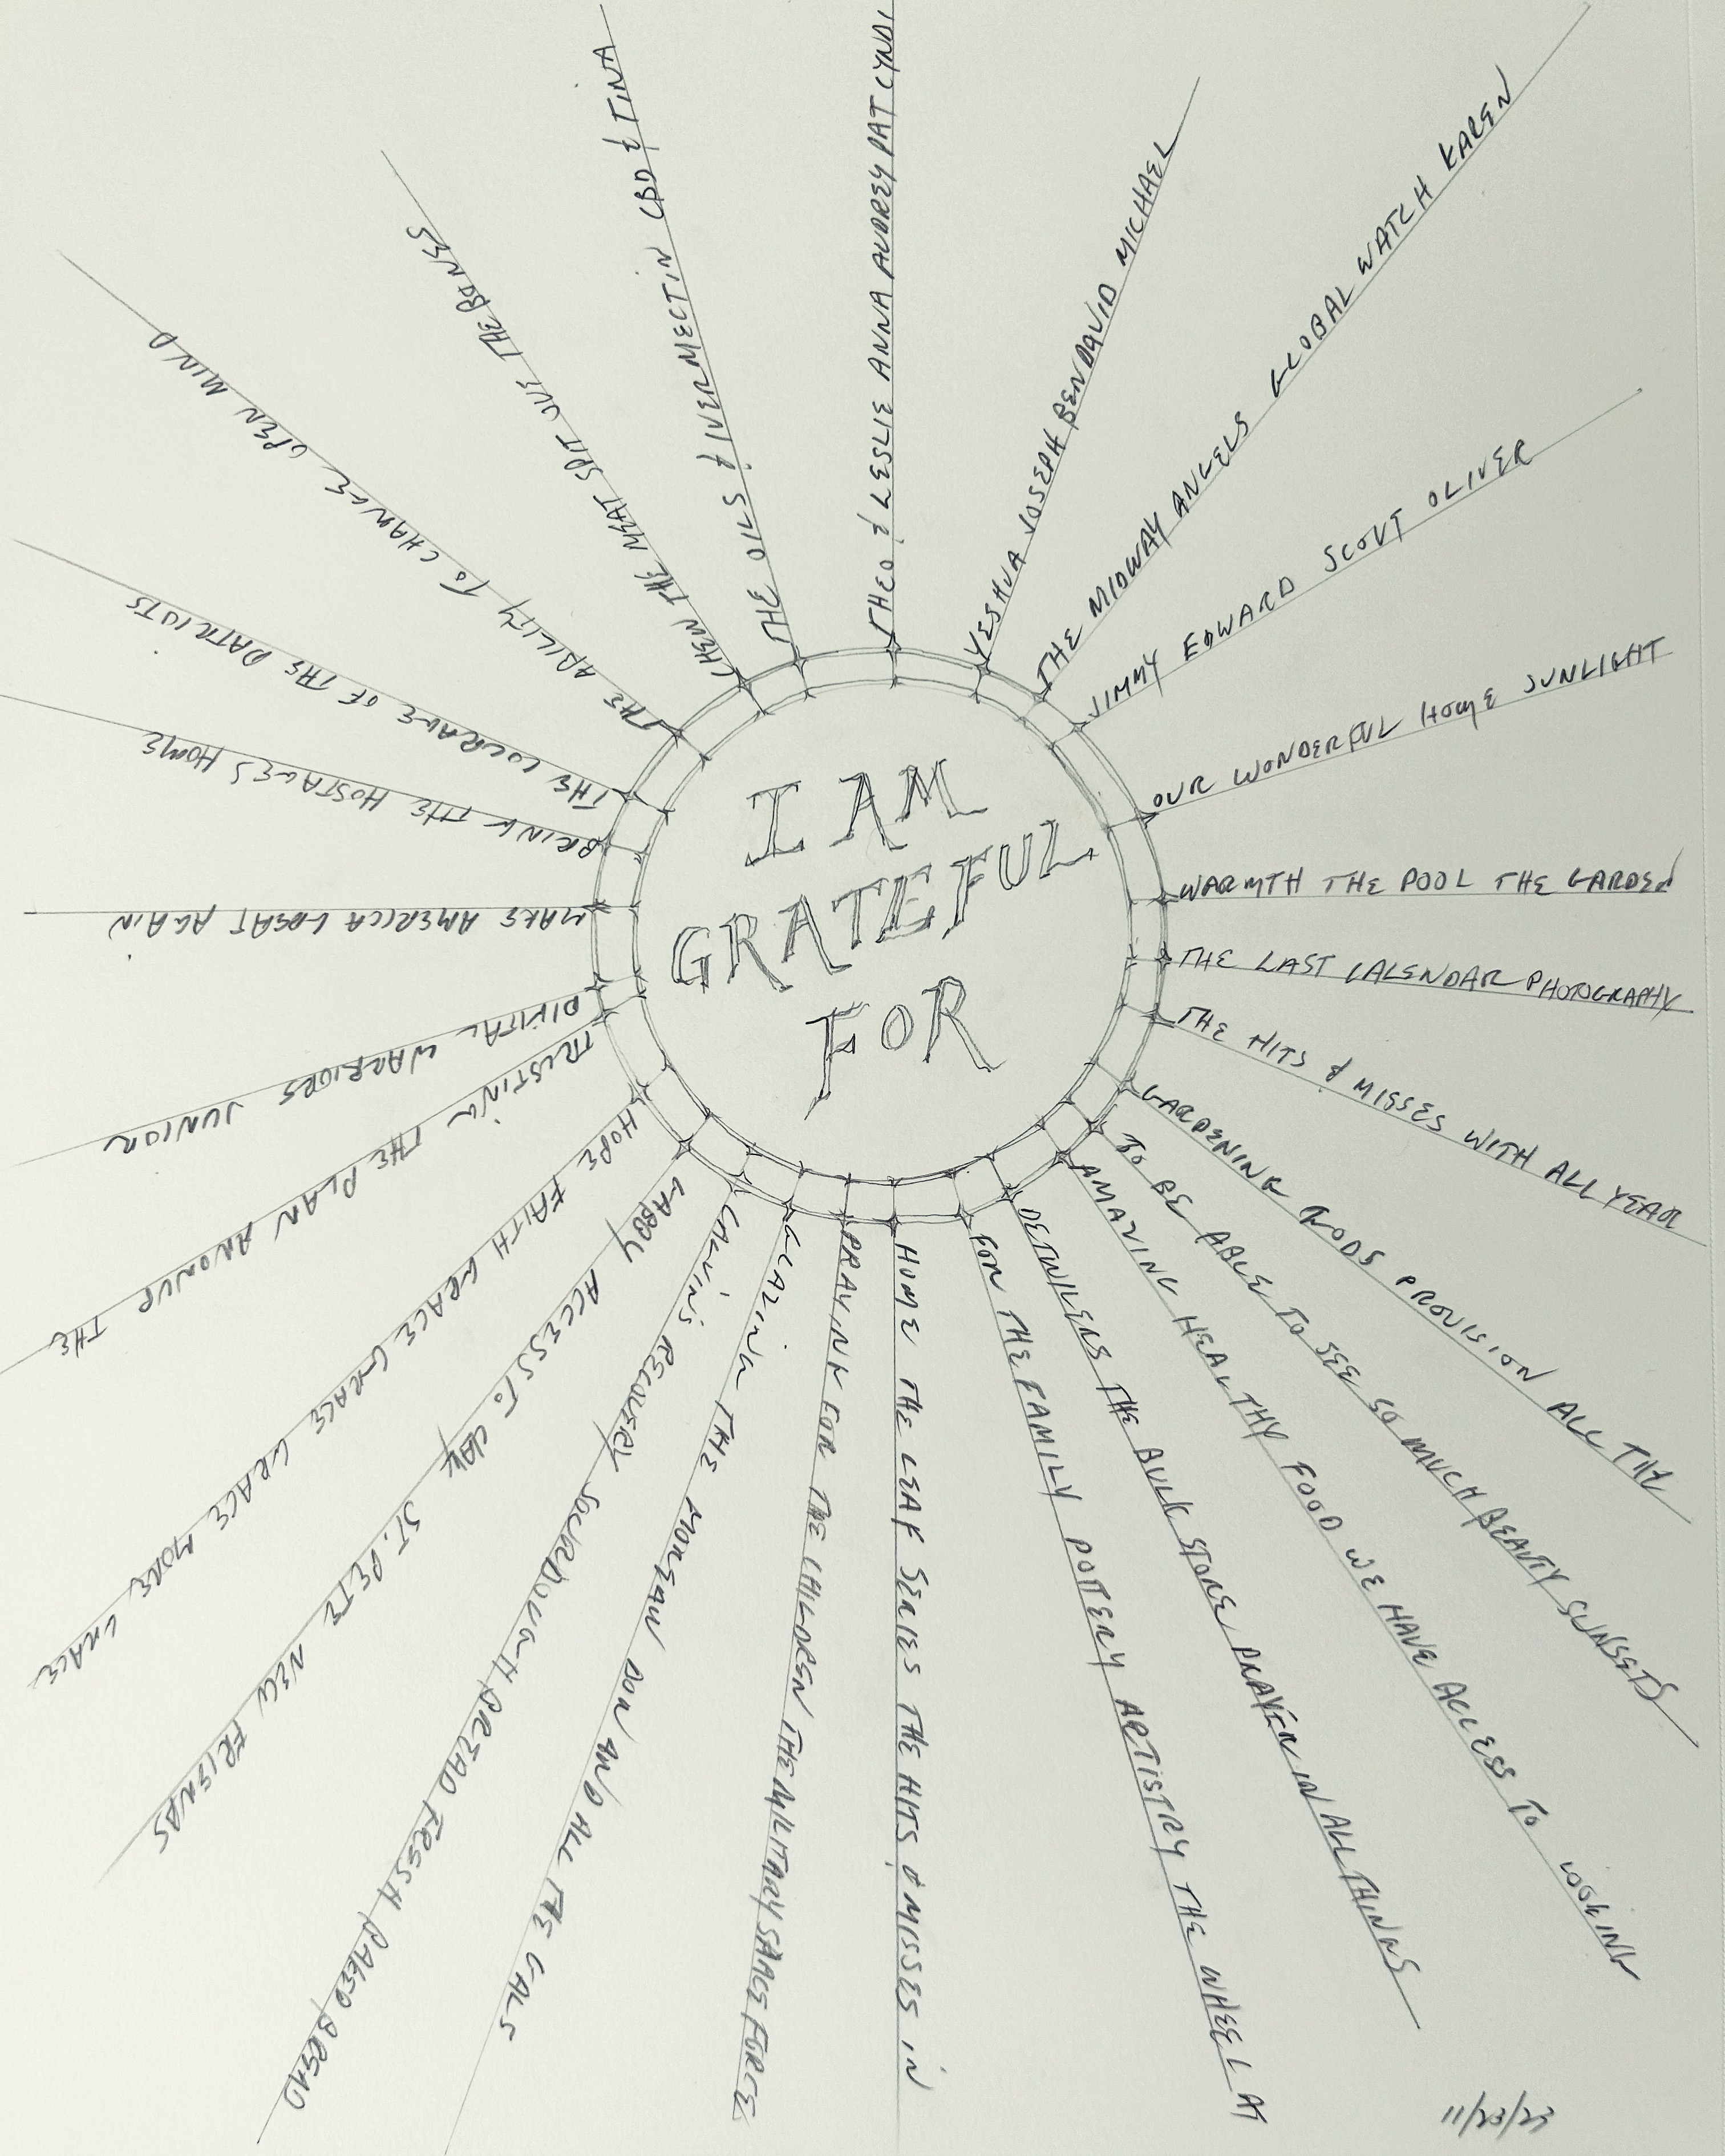 I AM
GRATEFUL
FOR
THEO & LESLIE ANNA AUDREY PAT CYNDI
YESHUA JOSEPH BENDAVID MICHAEL
THE MIDWAY ANGELS GLOBAL WATCH KAREN
JIMMY EDWARD SCOUT OLIVER
OUR WONDERFUL HOME SUNLIGHT
WARMTH THE POOL THE GARDEN
THE LAST CALENDAR PHOTOGRAPHY
THE HITS & MISSES WITH ALL YEAR
GARDENING GODS PROVISION ALL THE
TO BE ABLE TO SEE SO MUCH BEAUTY SUNSETS
AMAZING HEALTHY FOOD WE HAVE ACCESS TO COOKING
DETWILERS THE BULK STORE PRAYER IN ALL THINGS
FOR THE FAMILY POTTERY ARTISTRY THE WHEEL AT
HOME THE LEAF SERIES THE HITS & MISSES IN
PRAYING FOR THE CHILDREN THE MILITARY SPACE FORCE
GLAZING THE MOREAN DON AND ALL THE GALS
CALVIN'S RECOVERY SOURDOUGH BREAD FRESH BAKED BREAD
GABBY ACCESS TO CLAY ST. PETE NEW FRIENDS
HOPE FAITH GRACE GRACE GRACE MORE GRACE
TRUSTING THE PLAN ANONUP THE
DIGITAL WARRIORS JUNIOR
MAKE AMERICA GREAT AGAIN
BRING THE HOSTAGES HOME
THE COURAGE OF THE PATRIOTS
THE ABILITY TO CHANGE OPEN MIND
CHEW THE MEAT SPIT OUT THE BONES
THE OILS & IVERMECTIN CBD & TINA
11/23/23